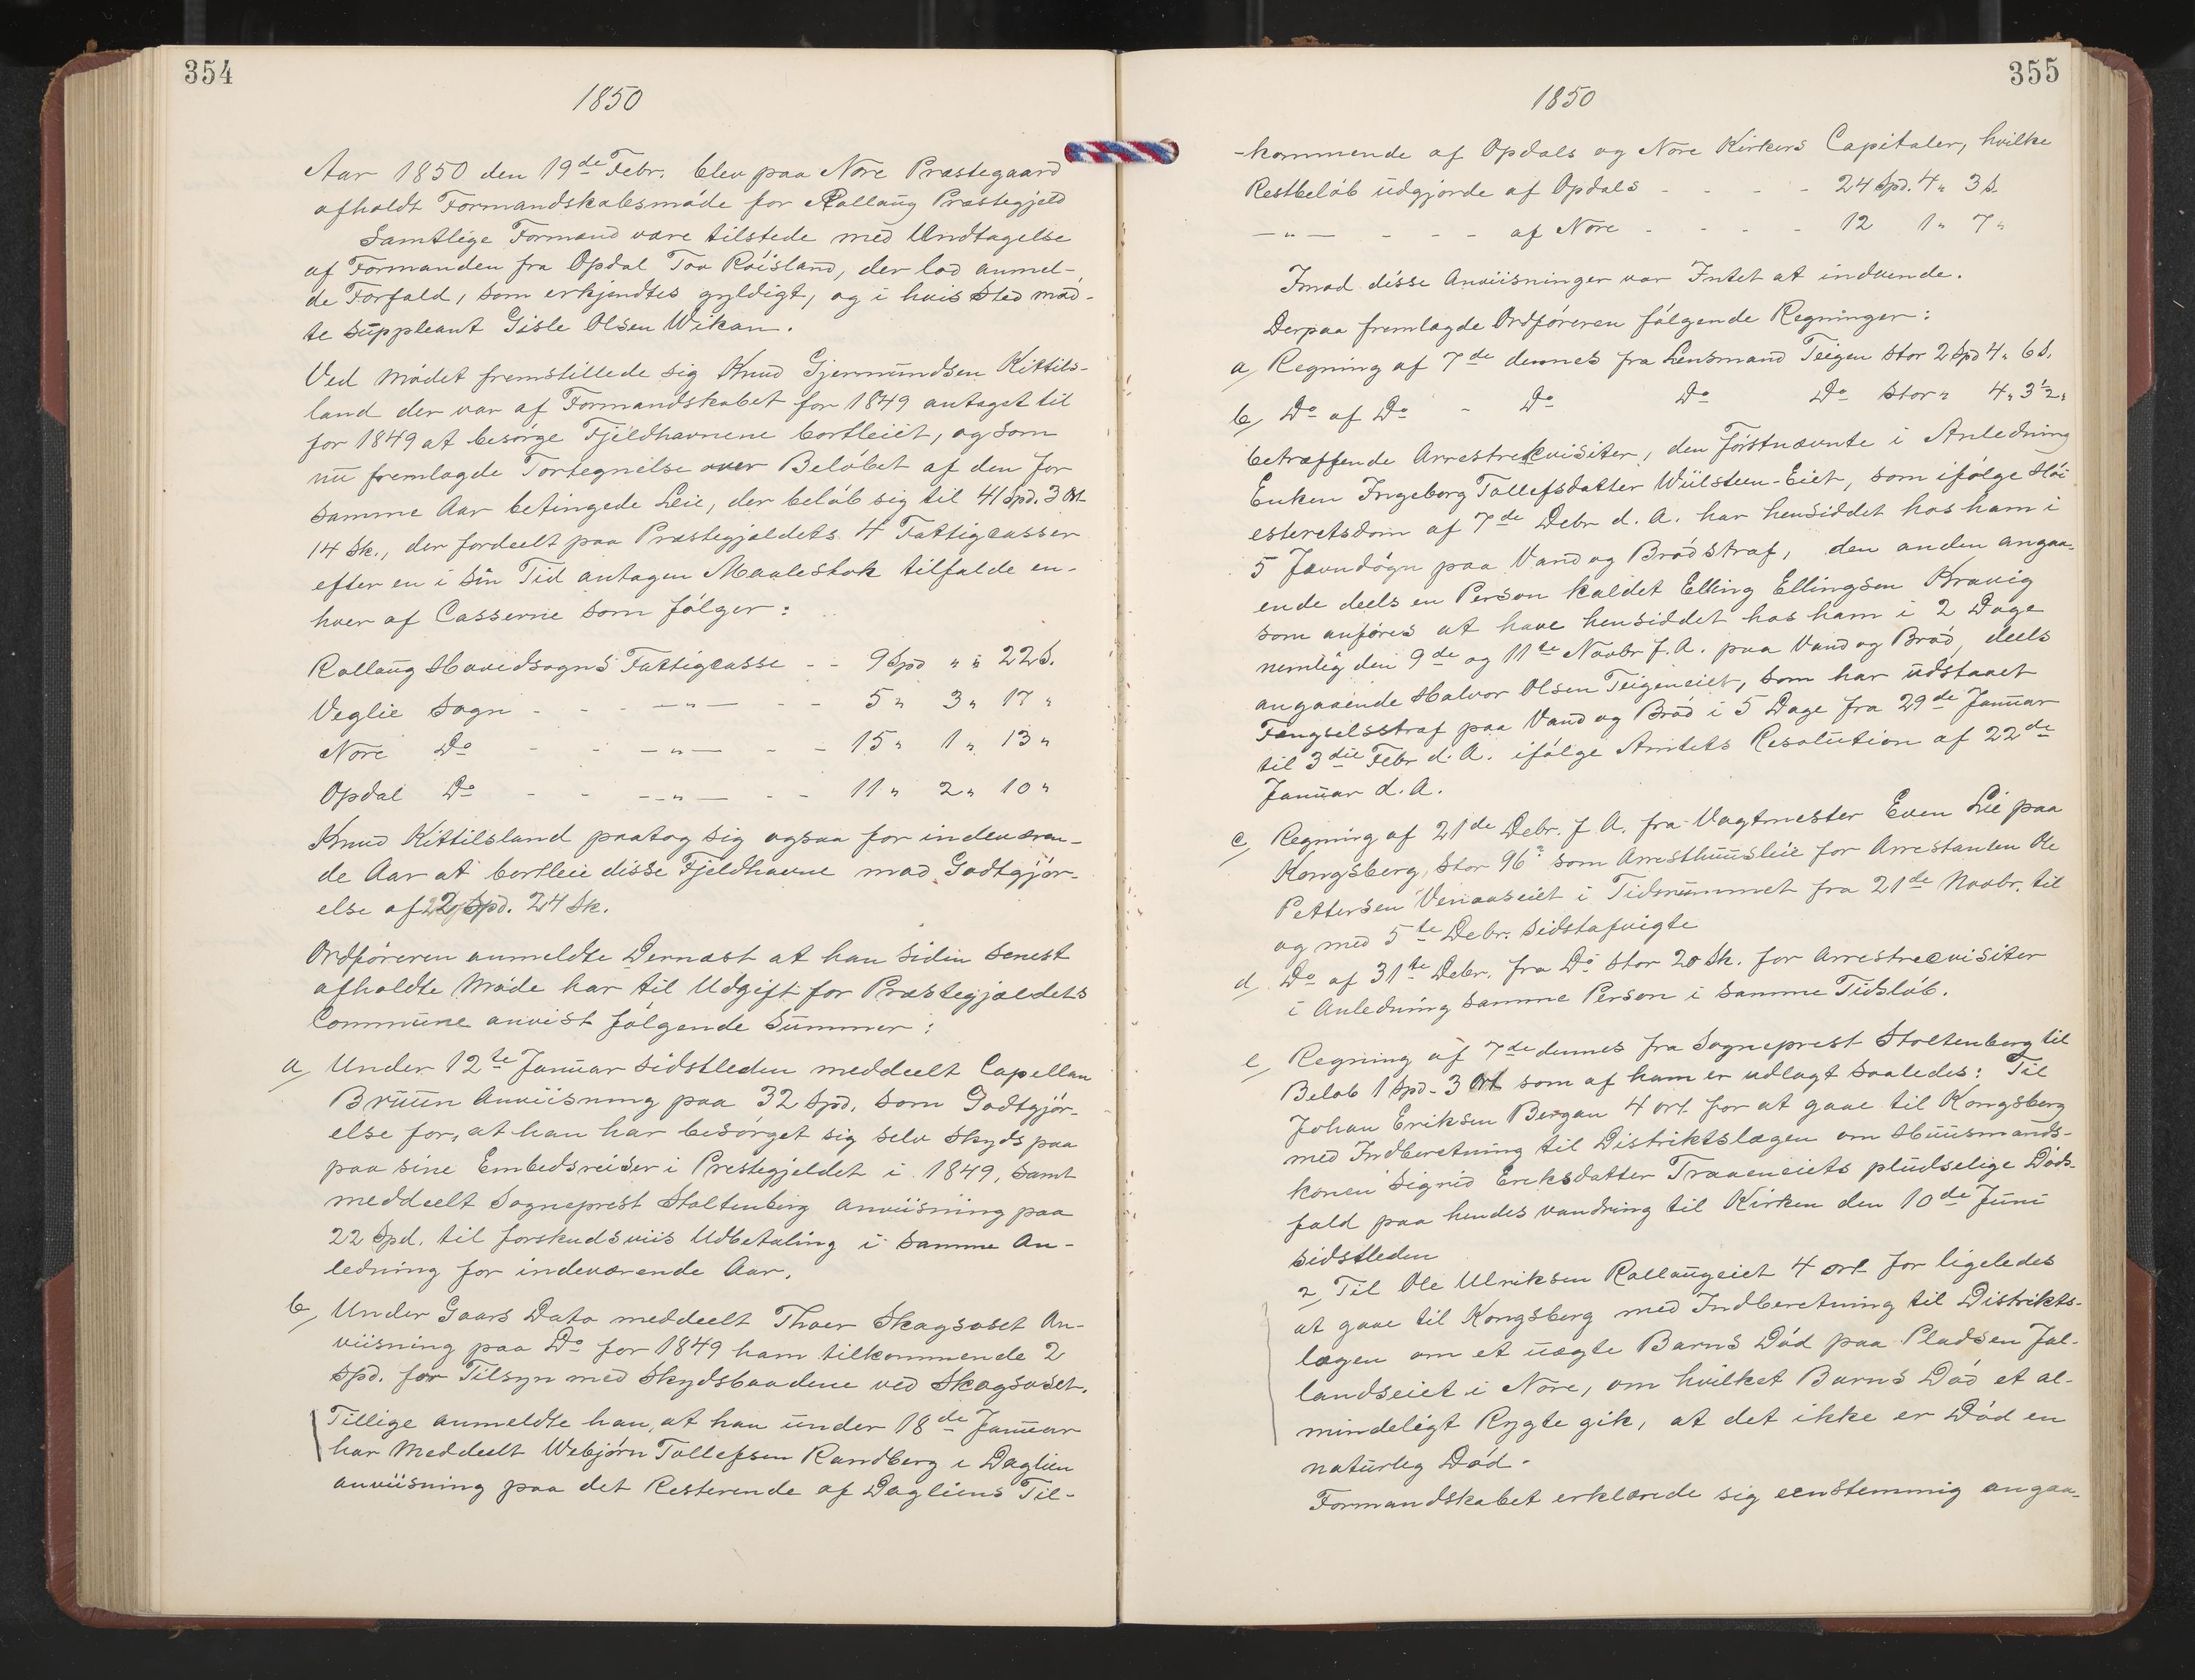 354
1850
Aar 1850 den 19de Febr. blev paa Nore Præstegaard
afholdt Formandskabsmøde for Rollaug Præstegjeld
Samtlige Formænd vare tilstede med Undtagelse
af Formanden fra Opdal Tov Röisland, der lod anmel-
de Forfald, som erkjendtes gyldigt, og i hvis Sted mød-
te Suppleant Gisle Olsen Wikan.
Ved Mødet fremstillede sig Knud Gjermundsen Kittils-
land der var af Formandskabet for 1849 antaget til
for 1849 at besørge Fjeldhavnene bortleiet, og som
nu fremlagde Fortegnelse over Beløbet af den for
samme Aar betingede Leie, der beløb sig til 41 Spd. 3 Ort
14 Sk., der fordeelt paa Præstegjældets 4 Fattigcasser
efter en i sin Tid antagen Maalestok tilfalde en-
hver af Casserne som følger:
Rollaug Hovedsogns Fattigcasse - - 9 Spd " " 22 S.
Veglie Sogn - - -"- - - 5 " 3 " 17 "
Nore Do - - -"- - - 15 " 1 " 13 "
Opdal Do - - -"- - - 11 " 2 " 10 "
Knud Kittilsland paatog sig ogsaa for indeværen-
de Aar at bortleie disse Fjeldhavne mod Godtgjør-
else af 2 Spd. 24 Sk.
Ordføreren anmeldte Dernæst at han siden senest
afholdte Møde har til Udgift for Præstegjældets
Commune anvist følgende Summer:
a, Under 12te Januar sidstleden meddeelt Capellan
Bruun Anviisning paa 32 Spd. som Godtgjør-
else for, at han har besørget sig selv Skyds paa
paa sine Embedsreiser i Prestegjeldet i 1849, samt
meddeelt Sogneprest Stoltenberg Anviisning paa
22 Spd. til forskudsviis Udbetaling i samme An-
ledning for indeværende Aar.
b, Under Gaars Dato meddeelt Thoer Skagsoset An-
viisning paa Do for 1849 ham tilkommende 2
Spd. for Tilsyn med Skydsbaadene ved Skogsoset.
Tillige anmeldte han, at han under 18de Januar
har Meddeelt Webjørn Tollefsen Randberg i Daglien
anviisning paa det Resterende af Dagliens Til-
355
1850
-kommende af Opdals og Nore Kirkers Capitaler, hvilke
Restbeløb udgjorde af Opdals - - - - 24 Spd. 4 " 3 S.
-"- - - - af Nore - - - - 12 1 " 7 "
Imod disse Anviisninger var Intet at indvende.
Derpaa fremlagde Ordføreren følgende Regninger:
a, Regning af 7de dennes fra Lensmand Teigen stor 2 Spd 4 " 6 S.
b, Do af Do - Do Do Do stor " 4 " 3 1/2 "
betræffende Arrestrekvisiter, den førstnævnte i Anledning
Enken Ingeborg Tollefsdatter Wülsteen-Eiet, som ifølge Høi-
esteretsdom af 7de Debr d. A. har hensiddet hos ham i
5 Jevndøgn paa Vand og Brød straf, den anden angaa-
ende deels en Person kaldet Elling Ellingsen Kravig
som anføres at have hensiddet hos ham i 2 Dage
nemlig den 9de og 11te Novbr f. A. paa Vand og Brød, deels
angaaende Halvor Olsen Teigeneiet, som har udstaaet
Fængselsstraf paa Vand og Brød i 5 Dage fra 29de Januar
til 3die Febr d. A. ifølge Amtets Resolution af 22de
Januar d. A.
c, Regning af 21de Debr. f. A. fra Vagtmester Even Lie paa
Kongsberg, stor 96 s som Arresthuusleie for Arrestanten Ole
Pettersen Venaaseiet i Tidsrummet fra 21de Novbr. til
og med 5te Debr. sidstafvigte
d, Do af 31te Debr. fra Do stor 20 Sk. for Arrestrecvisiter
i Anledning samme Person i samme Tidsløb.
e, Regning af 7de dennes fra Sogneprest Stoltenberg til
Beløb 1 Spd - 3 Ort som af ham er udlagt saaledes: Til
Johan Eriksen Bergan 4 ort for at gaae til Kongsberg
med Indberetning til Distriktslægen om Huusmands-
konen Sigrid Eriksdatter Traaeneiets pludselige Døds-
fald paa hendes vandring til Kirken den 10de Juni
sidstleden
2, Til Ole Ulriksen Rollaugeiet 4 ort for ligeledes
at gaae til Kongsberg med Indberetning til Distrikts-
lægen om et uægte Barns Død paa Pladsen Jal-
landseiet i Nore, om hvilket Barns Død et al-
mindeligt Rygte gik, at det ikke er Død en
naturlig Død.
Formandskabet erklærede sig eenstemmig angaa-